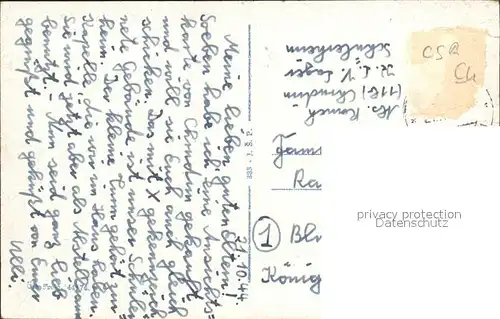 21.10.44.
Meine lieben guten Eltern!
Soeben habe ich eine Ansichts-
karte von Chrudim gekauft
und will sie Euch auch gleich
schicken. Das mit X gekennzeich
nete Gebäude ist unser Schüler
heim. Der kleine Turm gehört zur
Kapelle, die wir im Haus haben.
Sie wird jetzt aber als Abstellraum
benutzt. Nun seid ganz lieb
gegrüßt und geküßt von Eurer
Abs.
(11b) Chrudim
K.L.V. Lager
Schülerheim
Fam
Ra
1 Bl
König
privacy protection
watermark